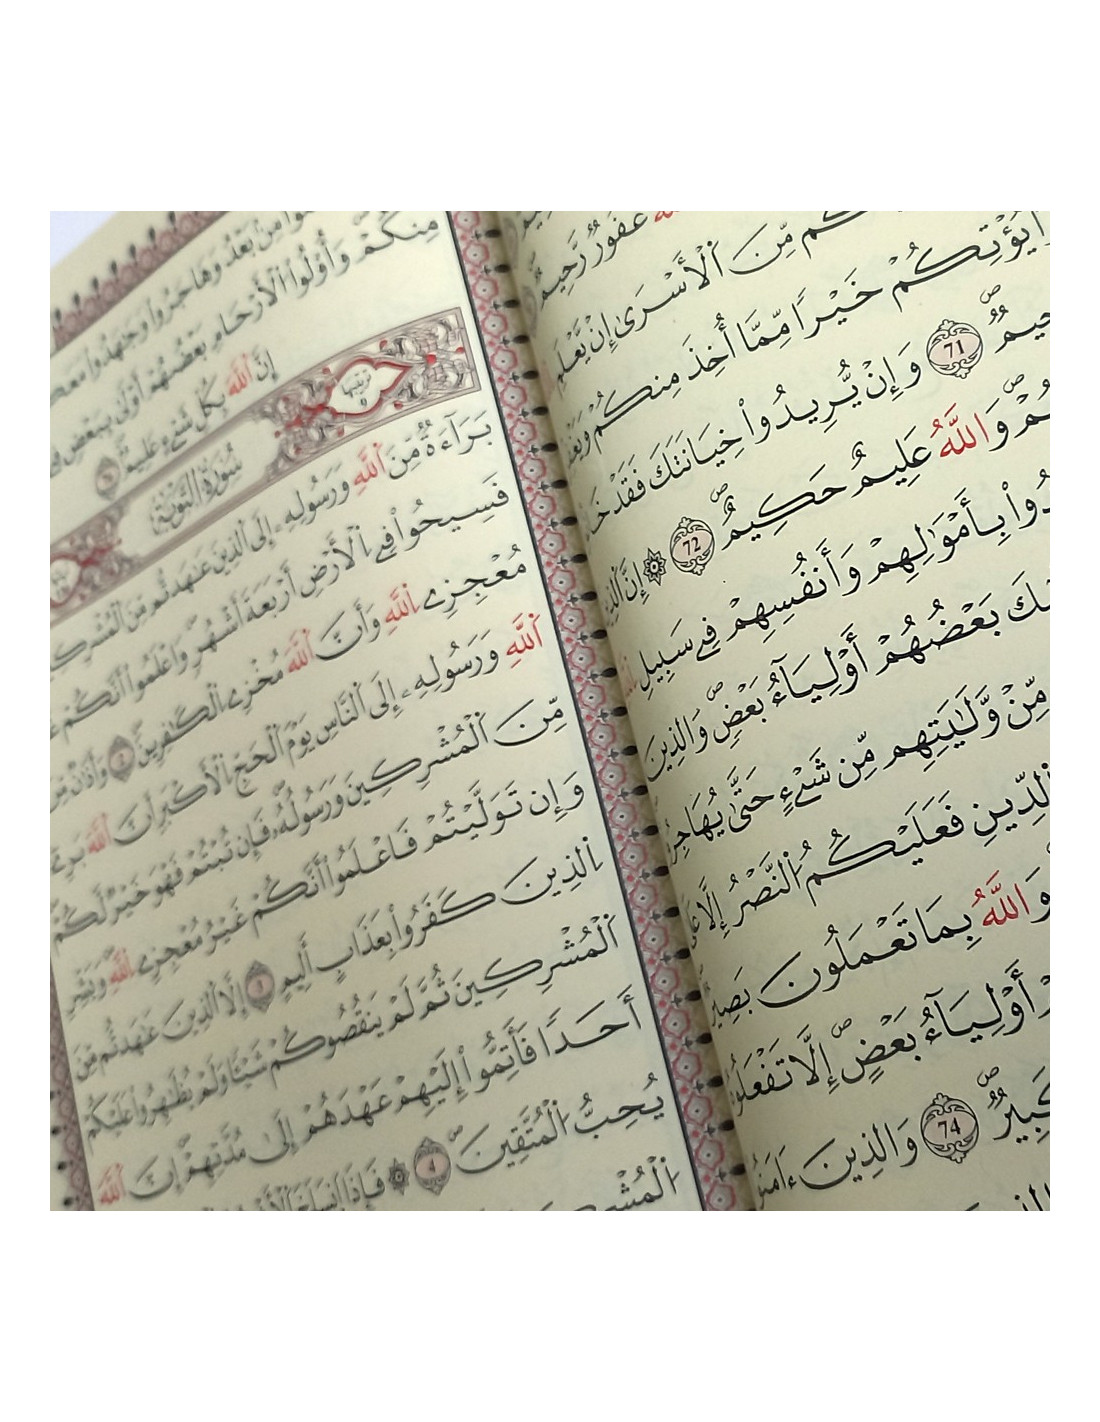 غَفُورٌ رَّحِيمٌ
كُم مِّنَ اَ۬لْأَسْر۪ىٰ إِنْ يَّعْلَمِ
يُؤْتِكُمْ خَيْراً مِّمَّا أُخِذَ مِنكُمْ وَيَغْ
حِيمٌ 71 وَإِنْ يُّرِيدُوا خِيَانَتَكَ فَقَدْ خَا
هُمْ وَاللَّهُ عَلِيمٌ حَكِيمٌ 72 إِنَّ اَ۬لذِي
دُوا بِأَمْوَٰلِهِمْ وَأَنفُسِهِمْ فِے سَبِيلِ
ئِكَ بَعْضُهُمْ أَوْلِيَآءُ بَعْضٍ وَالذِينَ
مِّنْ وَّلَٰيَتِهِم مِّن شَےْءٍ حَتَّىٰ يُهَاجِرُ
الدِّينِ فَعَلَيْكُمُ اُ۬لنَّصْرُ إِلَّا عَلَىٰ
وَاللَّهُ بِمَا تَعْمَلُونَ بَصِيرٌ
أَوْلِيَآءُ بَعْضٍ إِلَّا تَفْعَلُوهُ
كَبِيرٌ 74 وَالذِينَ ءَامَنُو
مِنۢ بَعْدُ وَهَاجَرُوا وَجَٰهَدُوا مَعَكُ
مِنكُمْ وَأُوْلُوا اُ۬لْأَرْحَامِ بَعْضُهُمْ أَوْلَىٰ بِبَعْضٍ
إِنَّ اَ۬للَّهَ بِكُلِّ شَےْءٍ عَلِيمٌ
سُورَةُ التَّوْبَةِ
تَرْتِيبُهَا 9
بَرَآءَةٌ مِّنَ اَ۬للَّهِ وَرَسُولِهِۦ إِلَى اَ۬لذِينَ عَٰهَدتُّم مِّنَ اَ۬لْمُشْرِكِي
فَسِيحُوا فِے اِ۬لْأَرْضِ أَرْبَعَةَ أَشْهُرٍ وَاعْلَمُوا أَنَّكُمْ غَ
مُعْجِزِے اِ۬للَّهِ وَأَنَّ اَ۬للَّهَ مُخْزِے اِ۬لْكَٰفِرِينَ 2 وَأَذَٰنٌ مِّنَ
اَ۬للَّهِ وَرَسُولِهِۦ إِلَى اَ۬لنَّاسِ يَوْمَ اَ۬لْحَجِّ اِ۬لْأَكْبَرِ أَنَّ اَ۬للَّهَ بَرِےٓ
مِّنَ اَ۬لْمُشْرِكِينَ وَرَسُولُهُۥ فَإِن تُبْتُمْ فَهُوَ خَيْرٌ لَّكُمْ
وَإِن تَوَلَّيْتُمْ فَاعْلَمُوا أَنَّكُمْ غَيْرُ مُعْجِزِے اِ۬للَّهِ وَبَشِّرِ
اِ۬لذِينَ كَفَرُوا بِعَذَابٍ أَلِيمٍ 3 إِلَّا اَ۬لذِينَ عَٰهَدتُّم مِّنَ
اَ۬لْمُشْرِكِينَ ثُمَّ لَمْ يَنقُصُوكُمْ شَيْـٔاً وَلَمْ يُظَٰهِرُوا عَلَيْكُمُ
أَحَداً فَأَتِمُّوا إِلَيْهِمْ عَهْدَهُمْ إِلَىٰ مُدَّتِهِمْ إِنَّ اَ۬للَّهَ
يُحِبُّ اُ۬لْمُتَّقِينَ 4 فَإِذَا اَ۪نسَلَخَ اَ۬لْأَشْ
اُ۬لْمُشْرِكِ